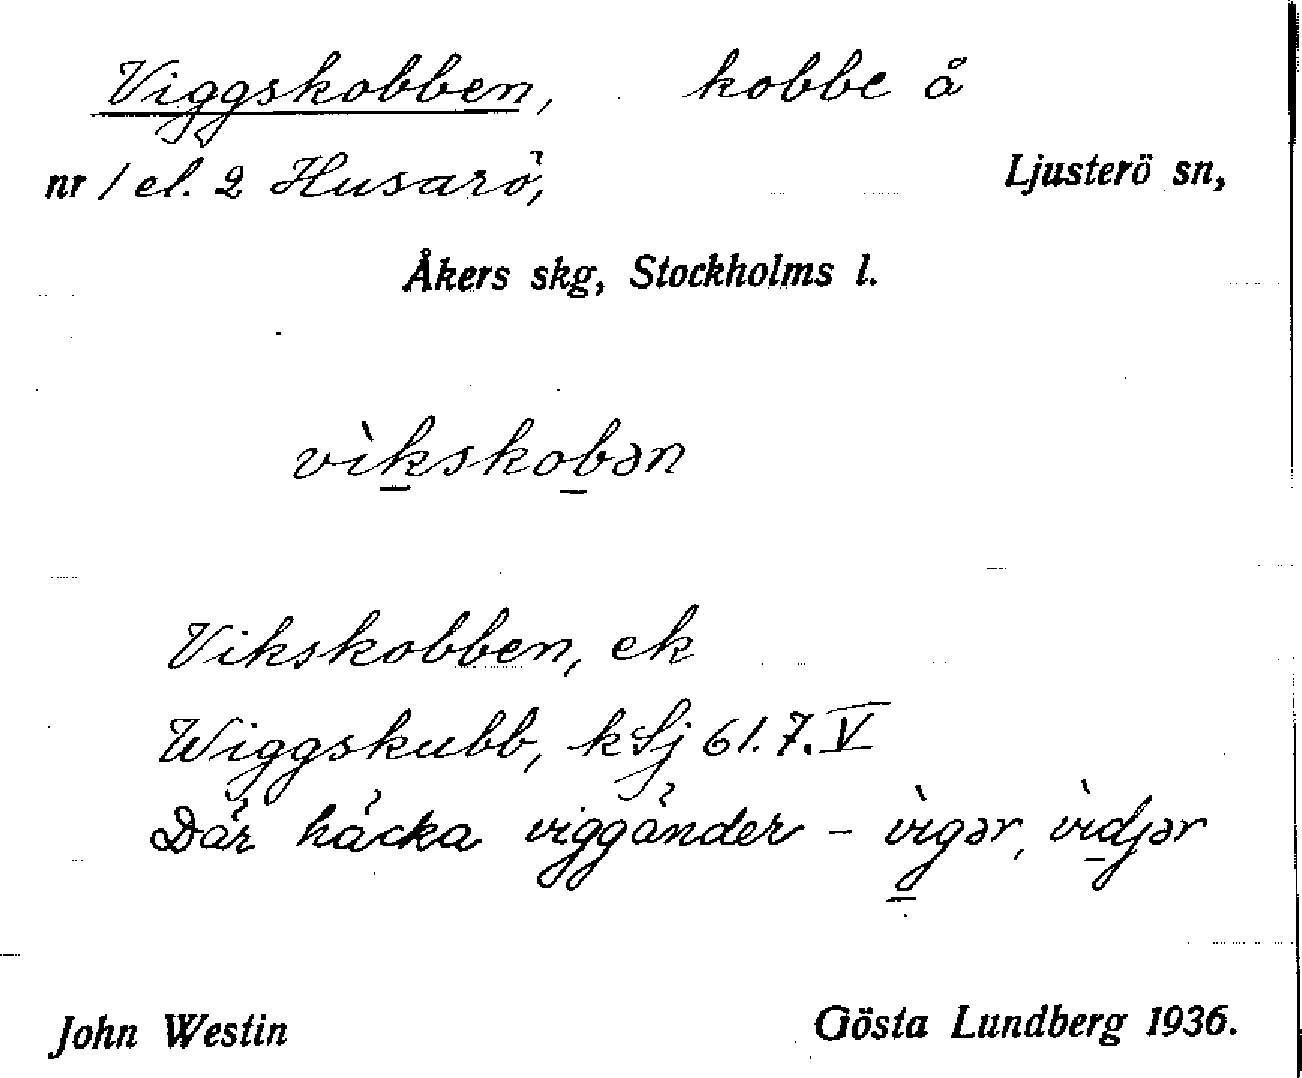 Viggskobben, kobbe å
nr 1 el. 2 Husarö, Ljusterö sn,
Åkers skg, Stockholms l.
vìk̲skob̲ən
Vikskobben, ek
Wiggskubb, kSj 61.7.V
Där häcka viggänder – vìg̲ər, vìd̲jər
John Westin Gösta Lundberg 1936.